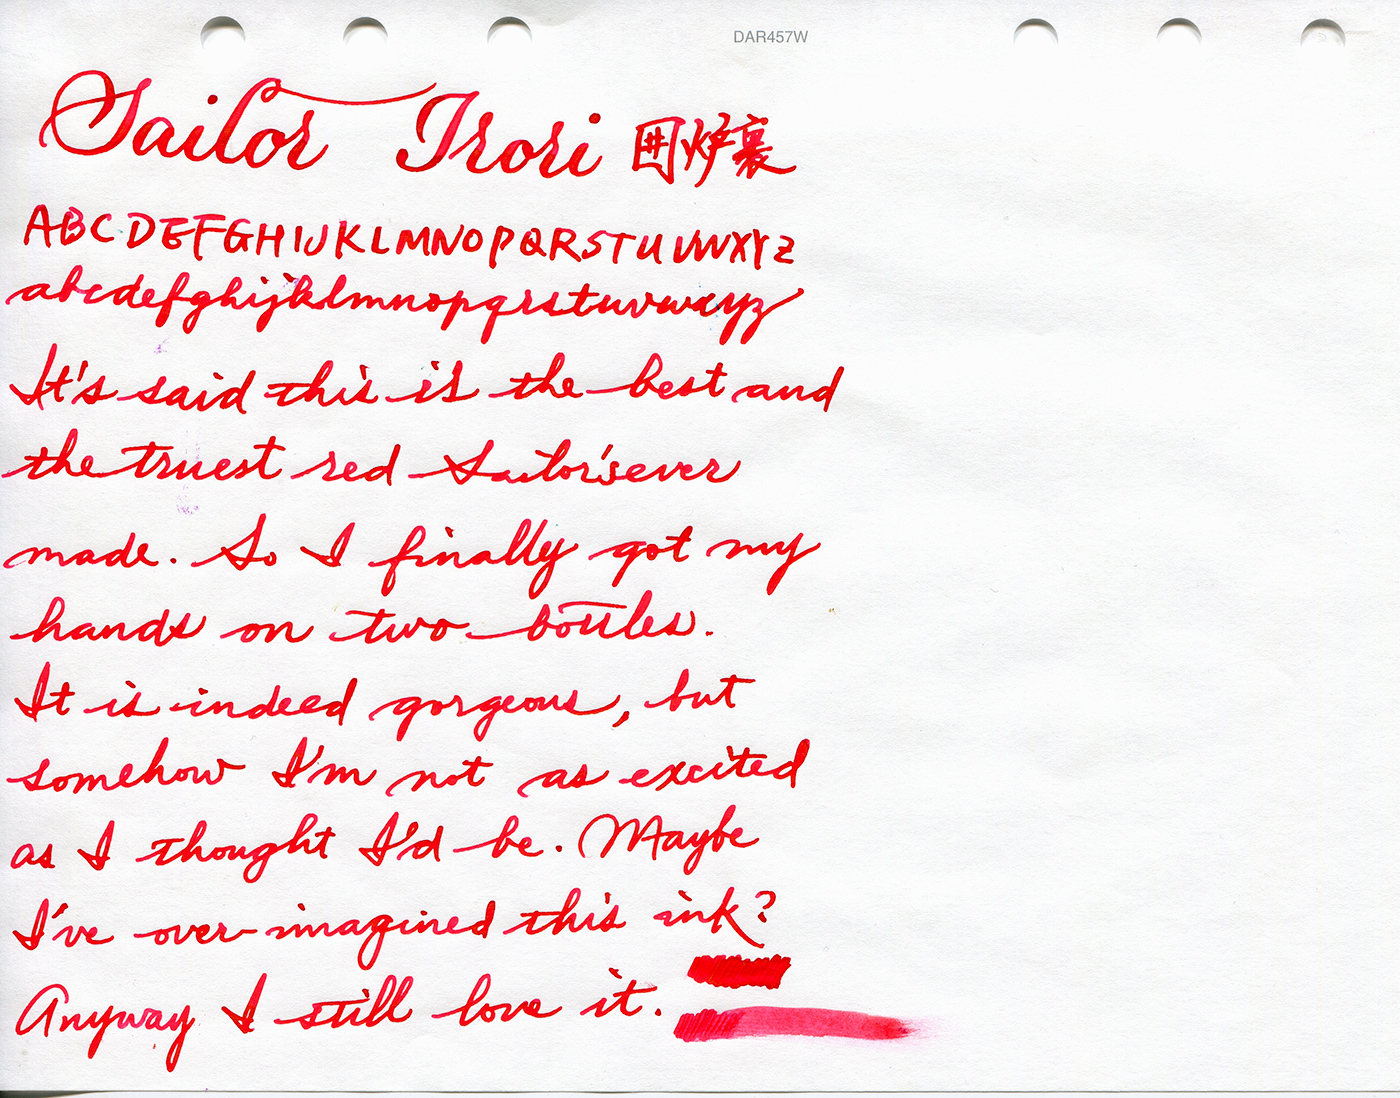 DAR457W
Sailor Irori 囲炉裏
ABCDEFGHIJKLMNOPQRSTUVWXYZ
abcdefghijklmnopqrstuvwxyz
It's said this is the best and
the truest red Sailor's ever
made. So I finally got my
hands on two bottles.
It is indeed gorgeous, but
somehow I'm not as excited
as I thought I'd be. Maybe
I've over-imagined this ink?
Anyway I still love it.